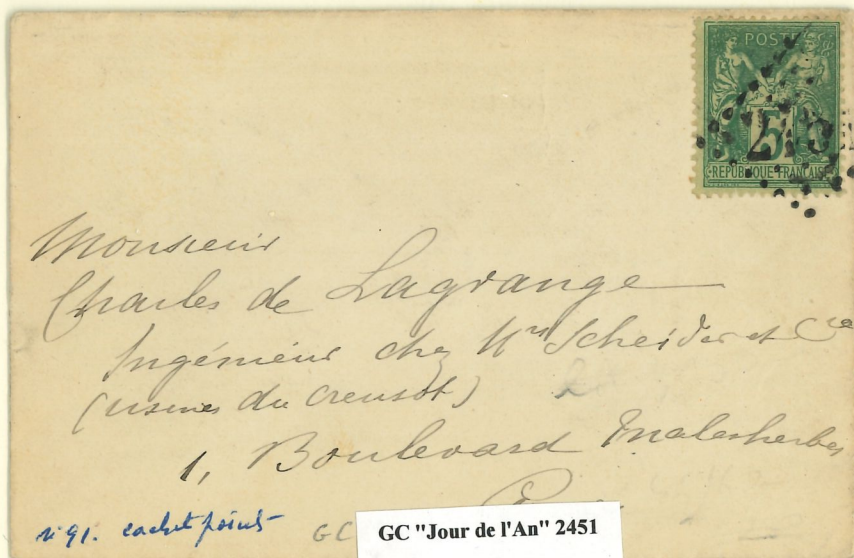 POSTES
5
RÉPUBLIQUE FRANÇAISE
Monsieur
Charles de Lagrange
Ingénieur chez Mrs Scheider et Cie
(usines du Creusot)
1, Boulevard Malesherbes
n° 91. cachet point
GC
GC "Jour de l'An" 2451